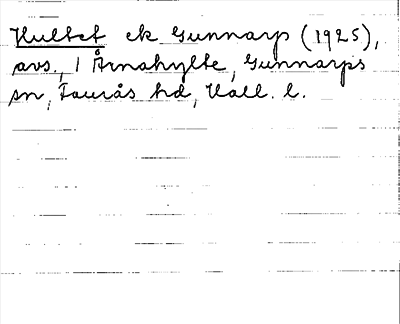 Hultet ek Gunnarp (1925),
avs., 1 Årnahylte, Gunnarps
sn, Faurås hd, Hall. l.